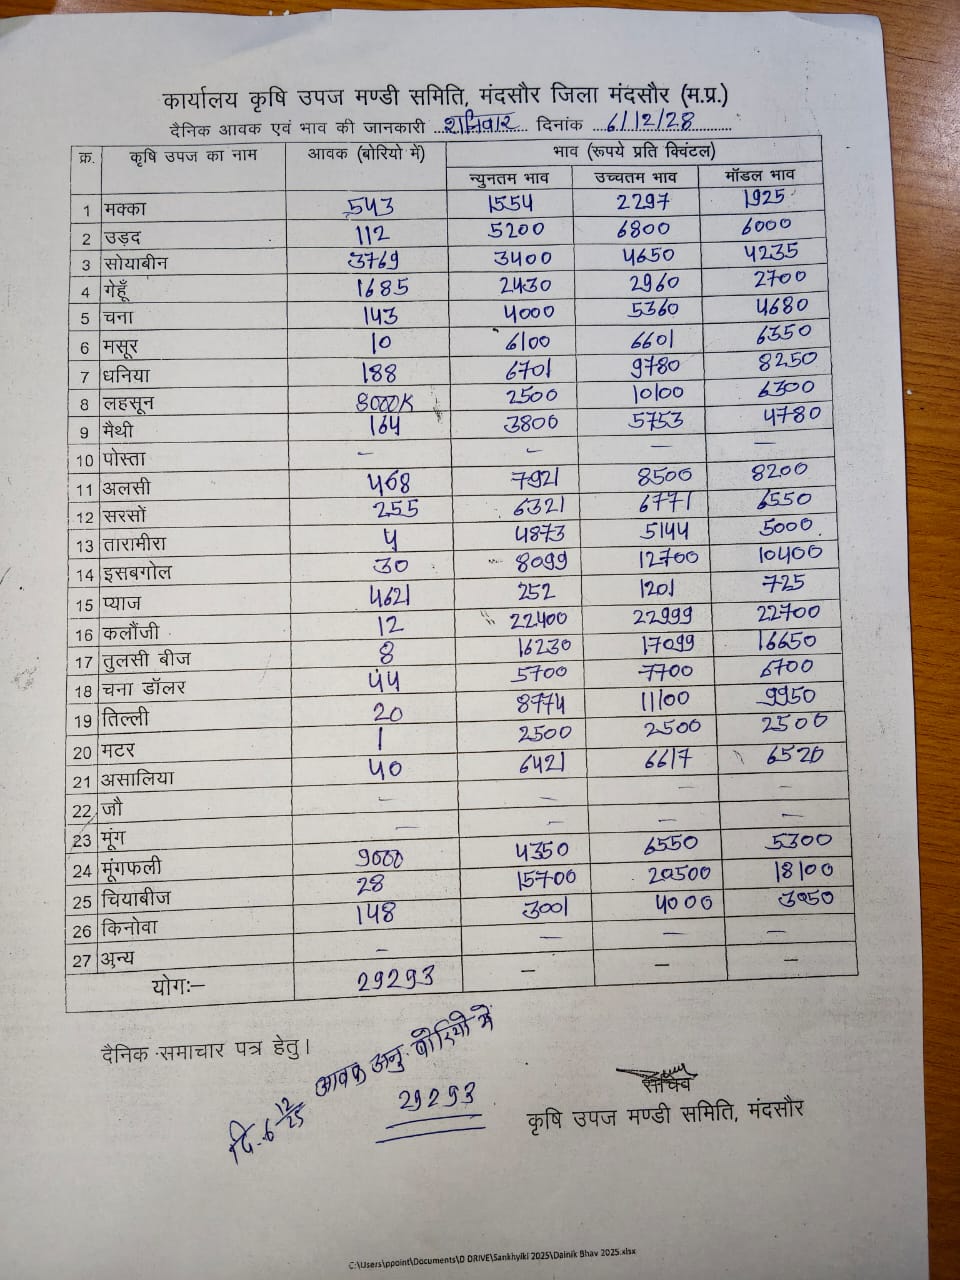 कार्यालय कृषि उपज मण्डी समिति, मंदसौर जिला मंदसौर (म.प्र.)
दैनिक आवक एवं भाव की जानकारी शनिवार दिनांक 6/12/28
क्र. कृषि उपज का नाम आवक (बोरियो में) भाव (रूपये प्रति क्विंटल)
न्युनतम भाव उच्चतम भाव मॉडल भाव
1 मक्का 543 1554 2297 1925
2 उड़द 112 5200 6800 6000
3 सोयाबीन 3769 3400 4650 4235
4 गेहूँ 1685 2430 2960 2700
5 चना 143 4000 5360 4680
6 मसूर 10 6100 6601 6350
7 धनिया 188 6701 9780 8250
8 लहसून 8000K 2500 10100 6300
9 मैथी 164 3800 5753 4780
10 पोस्ता — — — —
11 अलसी 468 7921 8500 8200
12 सरसों 255 6321 6771 6550
13 तारामीरा 4 4873 5144 5000
14 इसबगोल 30 8099 12700 10400
15 प्याज 4621 252 1201 725
16 कलौंजी 12 22400 22999 22700
17 तुलसी बीज 8 16230 17099 16650
18 चना डॉलर 44 5700 7700 6700
19 तिल्ली 20 8774 11100 9950
20 मटर 1 2500 2500 2500
21 असालिया 40 6421 6617 6520
22 जौ — — — —
23 मूंग — — — —
24 मूंगफली 9000 4350 6550 5300
25 चियाबीज 28 15700 20500 18100
26 किनोवा 148 3001 4000 3050
27 अन्य — — — —
योगः– 29293 — — —
दैनिक समाचार पत्र हेतु।
दि. 6 12/25 आवक अनु. बोरियो में
29293
सचिव
कृषि उपज मण्डी समिति, मंदसौर
C:\Users\ppoint\Documents\D DRIVE\Sankhyiki 2025\Dainik Bhav 2025.xlsx